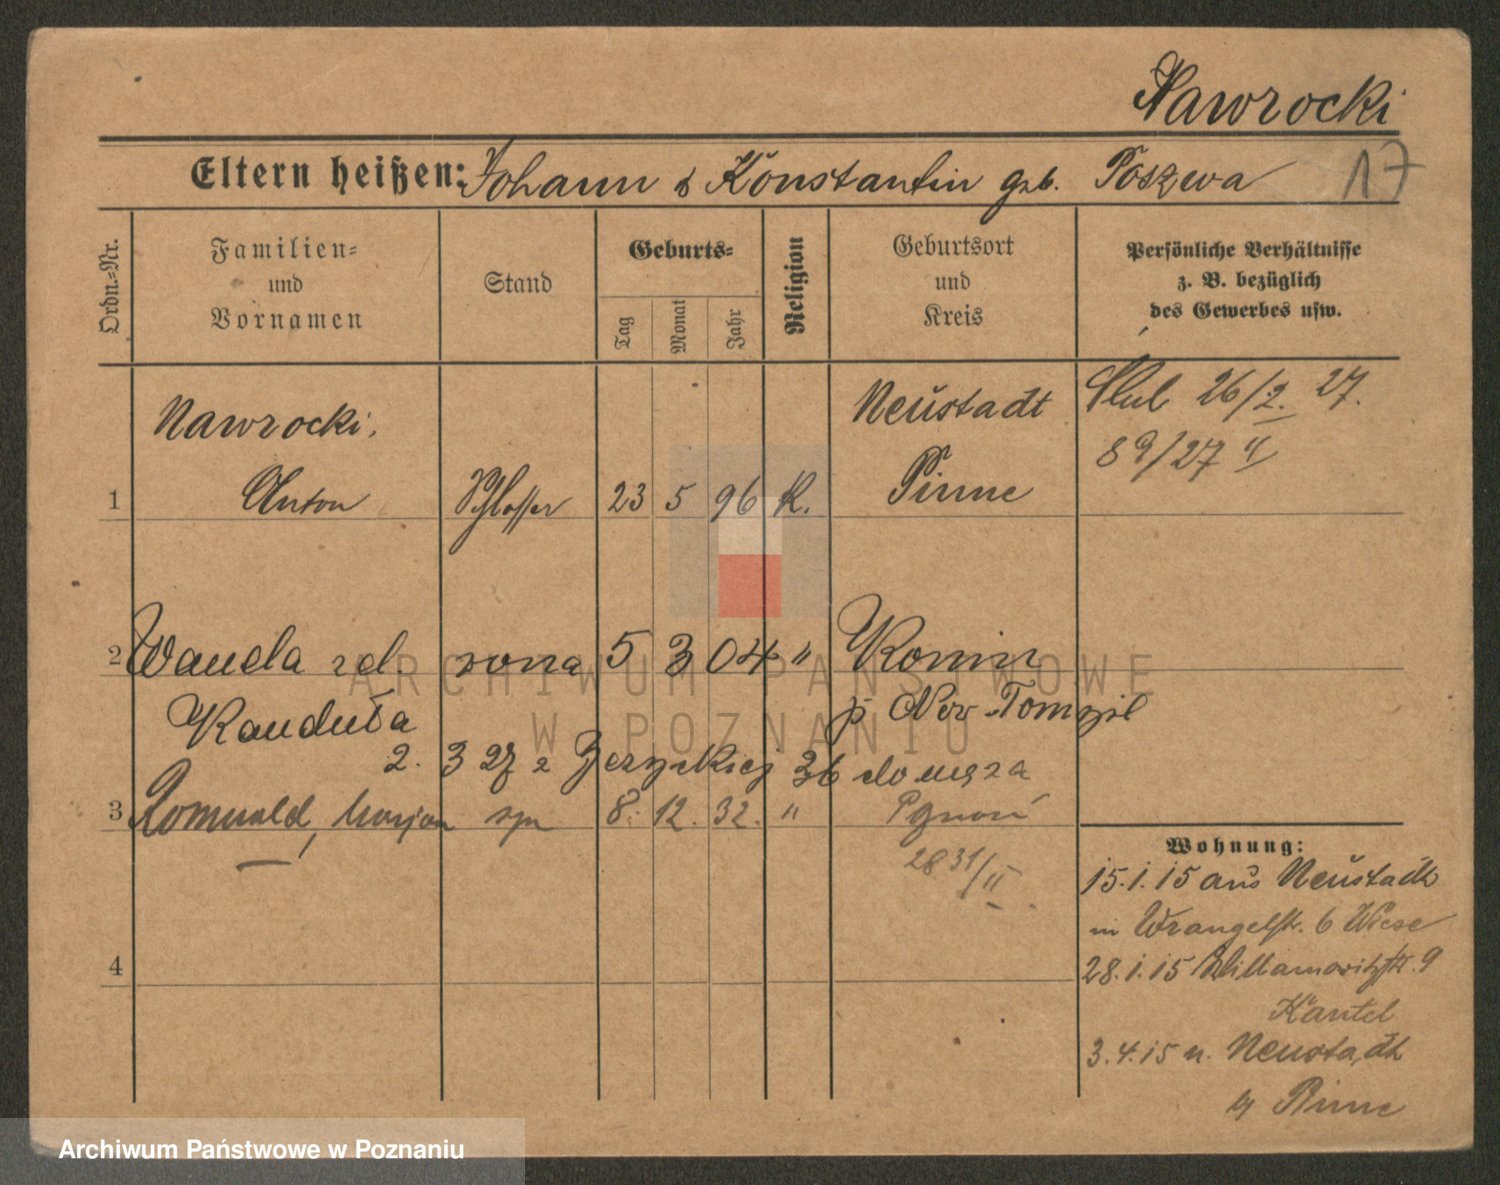 Nawrocki
Eltern heißen: Johann & Konstantin geb. Poszwa
17
Ordn.-Nr.
Familien- und Vornamen
Stand
Geburts-
Tag
Monat
Jahr
Religion
Geburtsort und Kreis
Persönliche Verhältnisse z. B. bezüglich des Gewerbes usw.
Nawrocki,
Neustadt
Ślub 26/2. 27.
89/27
1 Anton Schlosser 23 5 96 K. Pinne
2 Wanda zd żona 5 3 04 " Konin
Kanduła
p. Now-Tomyśl
2. 3 27 z Jeżyckiej 36 do męża
3 Romuald, Marjan syn 8. 12. 32. " Poznań
28 31/II
4
Wohnung:
15.1.15 aus Neustadt
in Wrangelstr. 6 Wiese
28.1.15 Willamowitzstr. 9
Kantel
3.4.15 n. Neustadt
b/ Pinne
ARCHIWUM PAŃSTWOWE
W POZNANIU
Archiwum Państwowe w Poznaniu